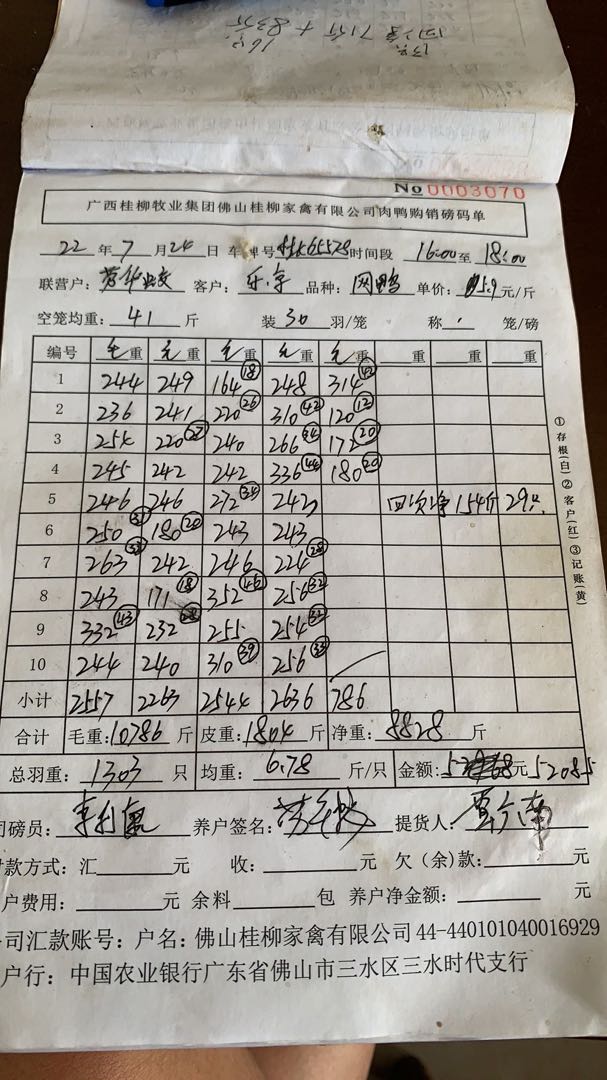 No 0003070
广西桂柳牧业集团佛山桂柳家禽有限公司肉鸭购销磅码单
22 年 7 月 24 日 车牌号 65578 时间段 16:00 至 18:00
联营户: 客户: 品种: 网鸭 单价: 5.9 元/斤
空笼均重: 41 斤 装 30 羽/笼 称 笼/磅
编号 毛重 毛重 毛重 毛重 毛重 重 重 重
1 244 249 164 ⑱ 248 314 ㊷
2 236 241 220 ㉖ 310 ㊷ 120 ⑫
3 254 220 240 266 ㉞ 172 ⑳
4 245 242 242 336 ㊹ 180 ⑳
5 246 246 272 ㉞ 242 回次净 154斤 29只
6 250 180 ⑳ 243 243
7 263 242 246 224
8 243 171 ⑱ 352 256 ㉜
9 332 ㊸ 232 ㉘ 255 254 ㉜
10 244 240 310 ㊴ 256
小计 2557 2263 2544 2636 786
合计 毛重: 10786 斤 皮重: 1804 斤 净重: 8828 斤
总羽重: 1303 只 均重: 6.78 斤/只 金额: 元 52085
司磅员: 养户签名: 提货人:
付款方式: 汇 元 收: 元 欠(余)款: 元
户费用: 元 余料 包 养户净金额: 元
司汇款账号: 户名: 佛山桂柳家禽有限公司 44-440101040016929
户行: 中国农业银行广东省佛山市三水区三水时代支行
①存根(白)②客户(红)③记账(黄)